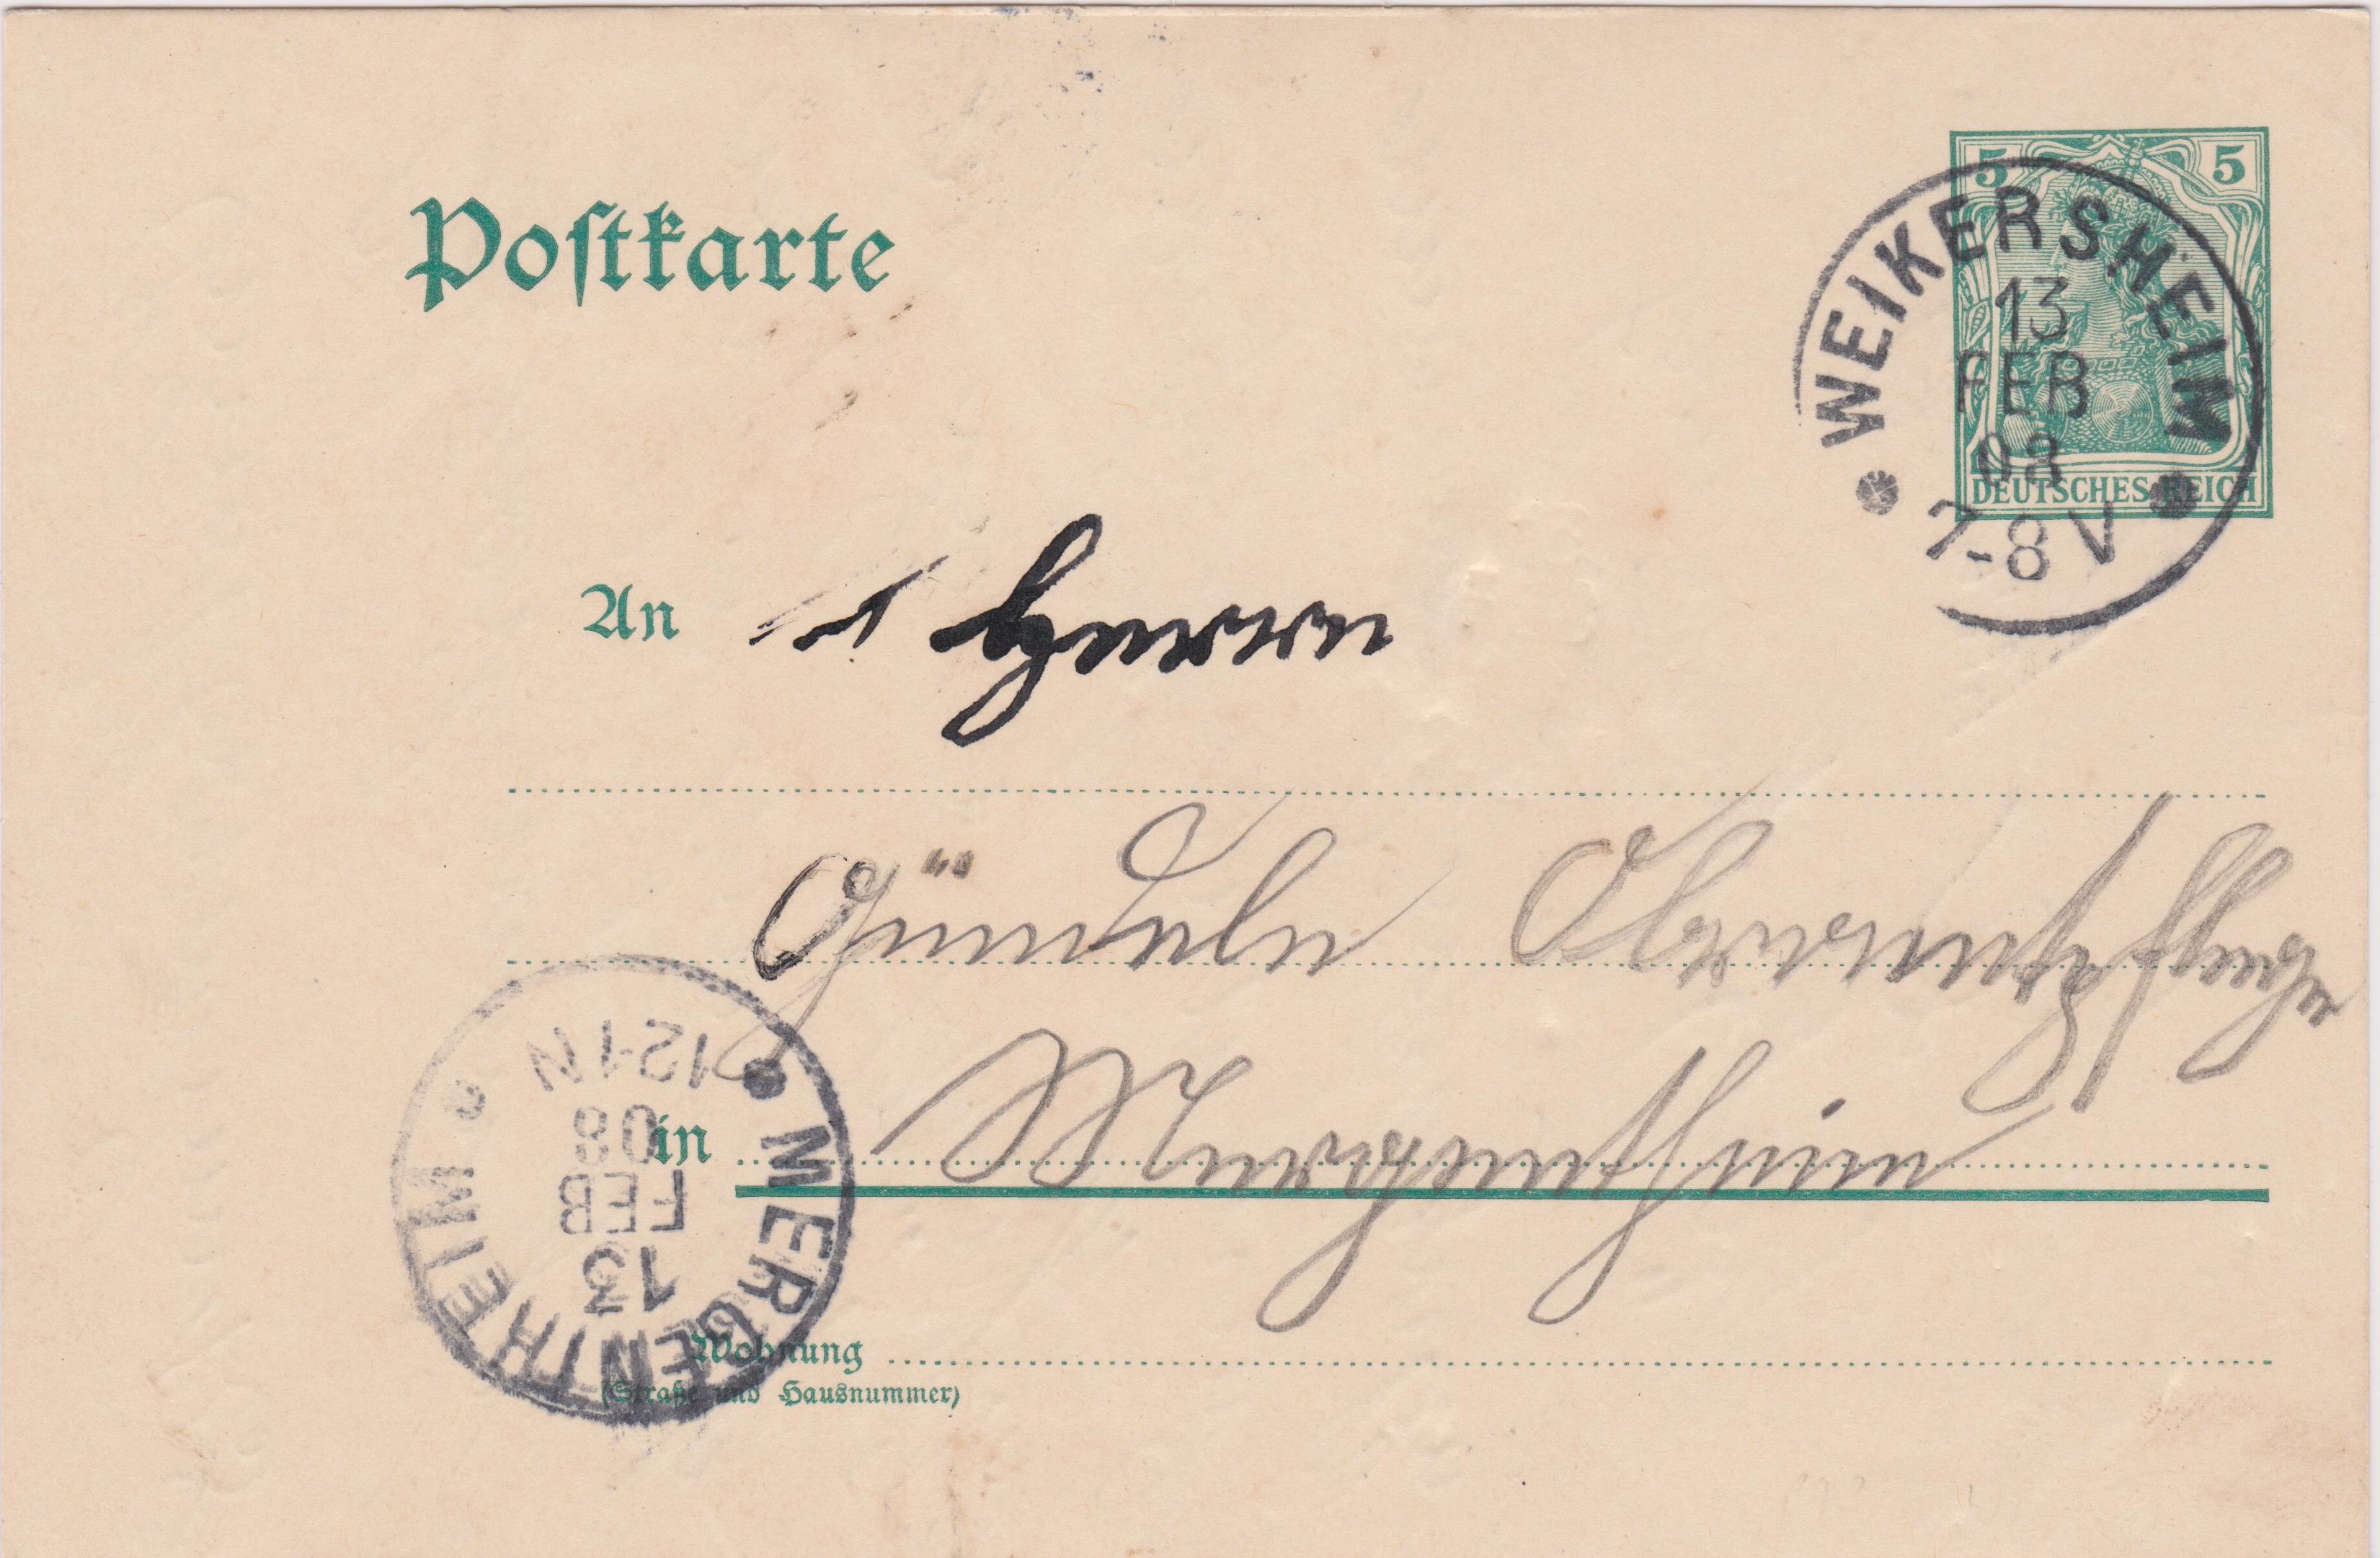 Postkarte
5 5
DEUTSCHES REICH
WEIKERSHEIM
13
FEB
08
7-8V
An
in Mergentheim
Wohnung
(Straße und Hausnummer)
MERGENTHEIM
13
FEB
08
12-1N